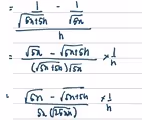 = (1/√(5x+5h) - 1/√(5x)) / h
= (√(5x) - √(5x+5h)) / ((√(5x+5h))√(5x)) × 1/h
= (√(5x) - √(5x+5h)) / × 1/h